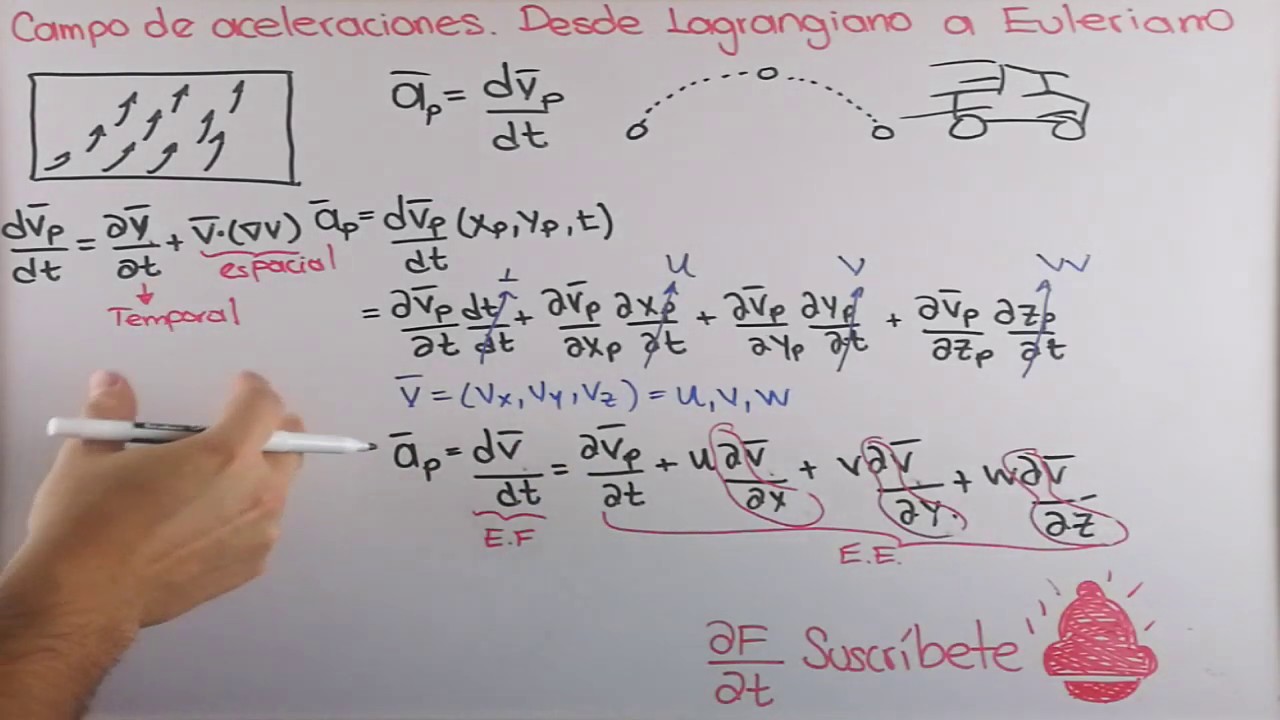 Campo de aceleraciones. Desde Lagrangiano a Euleriano
a̅ₚ = dv̅ₚ/dt
dv̅ₚ/dt = ∂v̅/∂t + v̅·(∇v)
espacial
Temporal
a̅ₚ = dv̅ₚ/dt (xₚ, yₚ, t)
1 u v w
= ∂v̅ₚ/∂t dt/dt + ∂v̅ₚ/∂xₚ ∂xₚ/∂t + ∂v̅ₚ/∂yₚ ∂yₚ/∂t + ∂v̅ₚ/∂zₚ ∂zₚ/∂t
v̅ = (Vx, Vy, Vz) = u, v, w
a̅ₚ = dv̅/dt = ∂v̅ₚ/∂t + u ∂v̅/∂x + v ∂v̅/∂y + w ∂v̅/∂z
E.F
E.E.
∂F/∂t Suscríbete